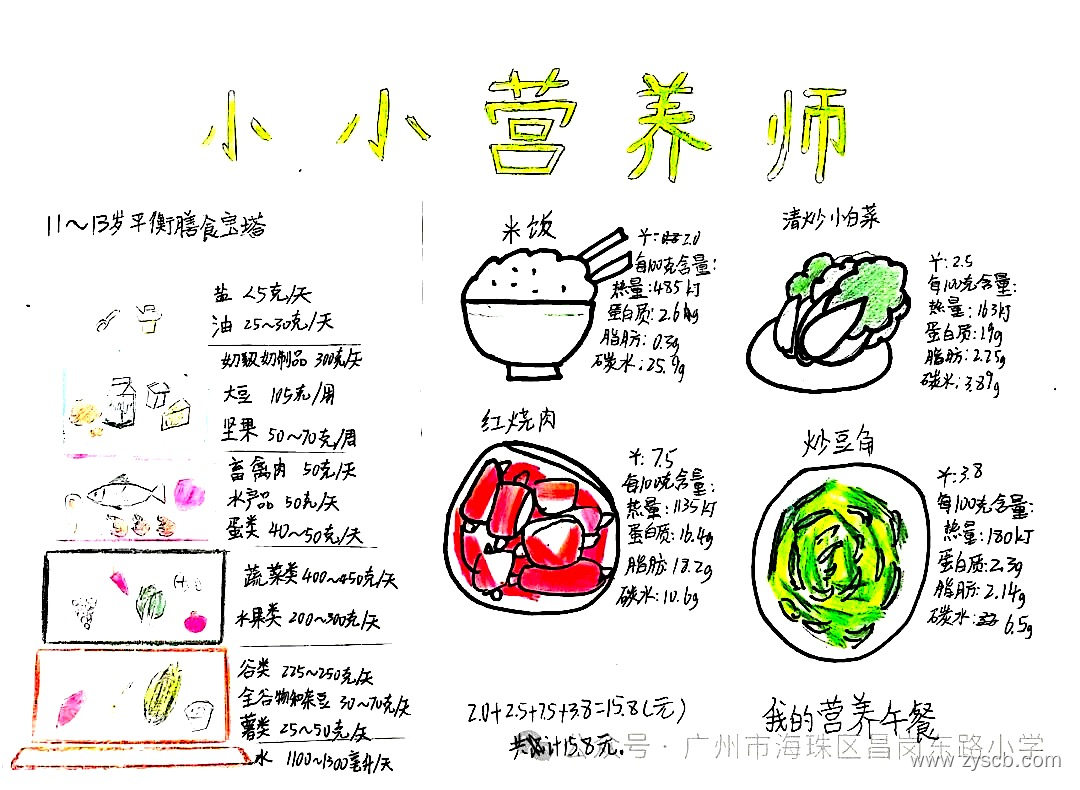 小小营养师
11～13岁平衡膳食宝塔
盐 <5克/天
油 25~30克/天
奶及奶制品 300克/天
大豆 105克/周
坚果 50~70克/周
畜禽肉 50克/天
水产品 50克/天
蛋类 40~50克/天
蔬菜类 400~450克/天
水果类 200~300克/天
谷类 225~250克/天
全谷物和杂豆 30~70克/天
薯类 25~50克/天
水 1100~1300毫升/天
米饭
¥: 2.0
每100克含量:
热量:485kJ
蛋白质:2.6g
脂肪: 0.3g
碳水:25.9g
清炒小白菜
¥: 2.5
每100克含量:
热量: 163kJ
蛋白质:1.9g
脂肪: 2.25g
碳水: 3.89g
红烧肉
¥: 7.5
每100克含量:
热量: 1135kJ
蛋白质: 16.4g
脂肪: 18.2g
碳水: 10.6g
炒豆角
¥: 3.8
每100克含量:
热量:180kJ
蛋白质:2.3g
脂肪: 2.14g
碳水: 6.5g
2.0+2.5+7.5+3.8=15.8(元)
共计15.8元.
我的营养午餐
公众号 · 广州市海珠区昌岗东路小学
www.zyscb.com